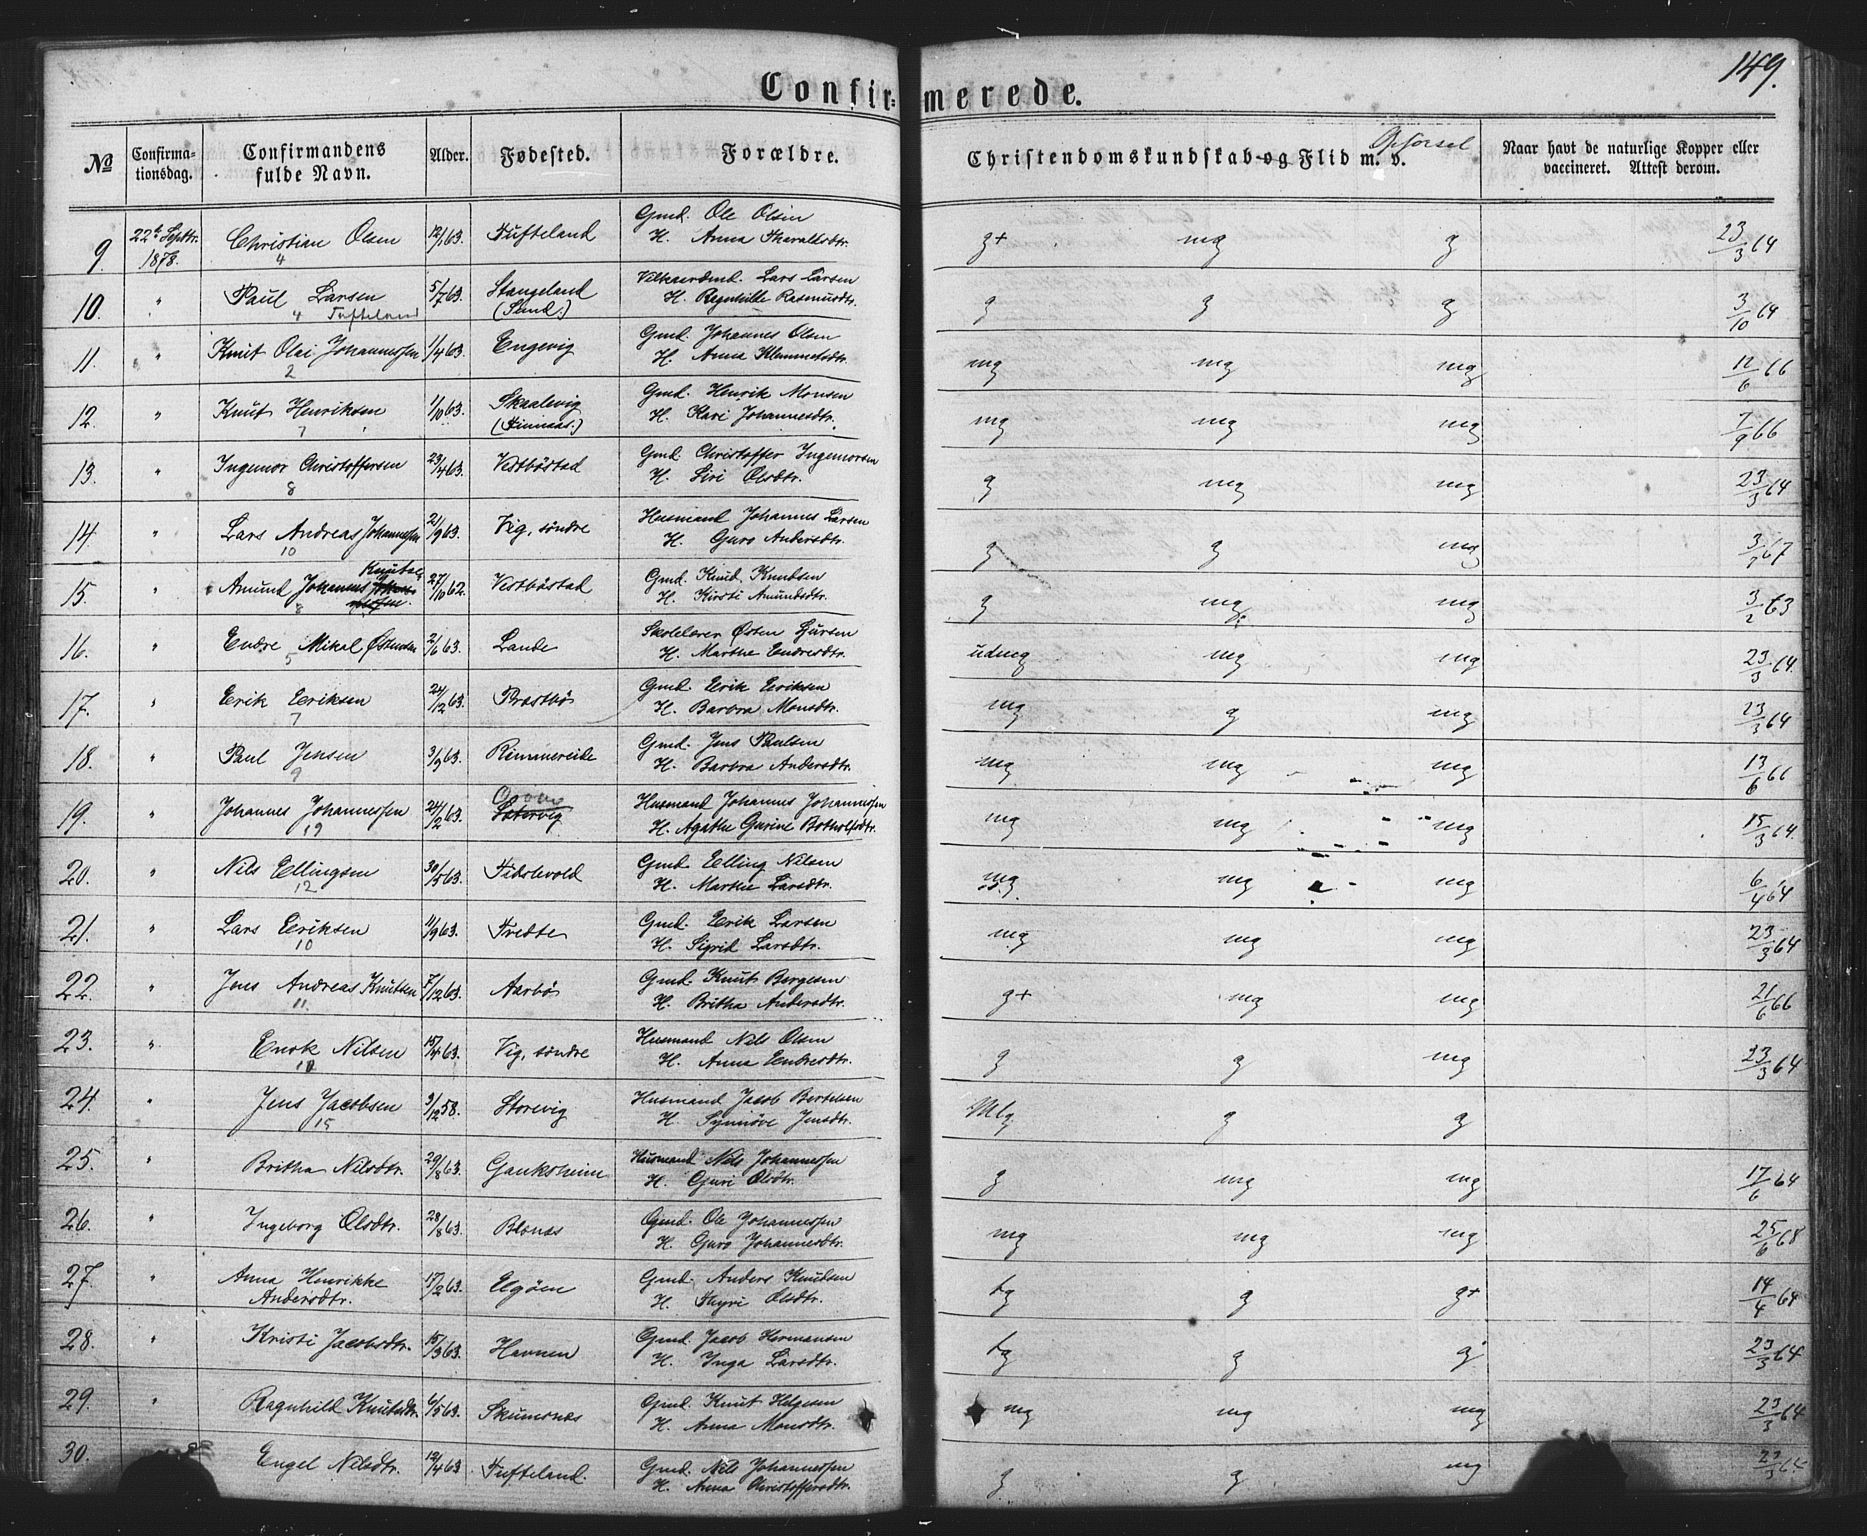 149.
Confirmerede.
No
Confirma-tionsdag.
Confirmandens fulde Navn.
Alder.
Fødested.
Forældre.
Christendomskundskab og Flid m. v.
Opførsel
Naar havt de naturlige Kopper eller vaccineret. Attest derom.
9. 22de Septbr. 1878. Christian Olsen 4 12/1 63. Tufteland Gmd. Ole Olsen
H. Anna Tharaldsdtr. g+ mg g 23/3 64
10. " Paul Larsen 4 Tufteland 5/7 63. Stangeland (Sund.) Vilkaarsmd. Lars Larsen
H. Ragnhilde Rasmusdtr. g g g 3/10 64
11. " Knut Olai Johannessen 2 1/4 63. Engevig Gmd. Johannes Olsen
H. Anna Klemmetsdtr. mg mg mg 12/6 66
12. " Knut Henriksen 7 1/10 63. Skaalevig (Finnaas.) Gmd. Henrik Monsen
H. Kari Johannesdtr. mg mg mg 7/9 66
13. " Ingemor Christoffersen 8 23/4 63. Vestbøstad Gmd. Christoffer Ingemorsen
H. Siri Olsdtr. g mg mg 23/3 64
14. " Lars Andreas Johannessen 10 21/9 63. Vig, søndre Husmand Johannes Larsen
H. Guro Andersdtr. g g mg 3/7 67
15. " Amund Johannes Knutsen 8 27/10 62. Vestbøstad Gmd. Knud Knudsen
H. Kirsti Amundsdtr. g mg mg 3/2 63
16. " Endre Mikal Østensen 5 2/6 63. Lande Skolelærer Østen
H. Marthe Endresdtr. udmg mg mg 23/3 64.
17. " Eerik Eeriksen 7 24/12 63. Brastbø Gmd. Eerik Eeriksen
H. Barbra Monsdtr. mg g mg 23/3 64
18. " Paul Jensen 9 3/9 63. Rimmereide Gmd. Jens Paulsen
H. Barbra Andersdtr. mg mg mg 13/6 66
19. " Johannes Johannessen 19 24/2 63. Husmand Johannes Johannessen
H. Agathe Gurine Botholfsdtr. mg mg mg 15/3 64.
20. " Nils Ellingsen 12 30/5 63. Fidslevold Gmd. Elling Nilsen
H. Marthe Larsdtr. mg mg mg 6/4 64
21. " Lars Eeriksen 10 11/9 63. Tredte Gmd. Eerik Larsen
H. Sigrid Larsdtr. mg mg mg 23/3 64
22. " Jens Andreas Knutsen 11. 7/12 63. Aarbø Gmd. Knut Børgesen
H. Britha Andersdtr. g+ mg mg 21/6 66
23. " Enok Nilsen 10 15/4 63. Vig, søndre Husmand Nils Olsen
H. Anna Endresdtr. g g mg 23/3 64
24. " Jens Jacobsen 15 3/12 58. Storevig Husmand Jacob Bertelsen
H. Synnøve Jensdtr. Mlg g g
25. " Britha Nilsdtr. 29/8 63. Gauksheim Husmand Nils Johannessen
H. Guri Olsdtr. g mg mg 17/6 64
26. " Ingeborg Olsdtr. 28/8 63. Blænes Gmd. Ole Johannessen
H. Guro Johannesdtr. mg mg mg 25/6 68
27. " Anna Henrikke Andersdtr. 17/2 63. Elgøen Gmd. Anders Knudsen
H. Thyri Olsdtr. tg g g+ 14/4 64
28. " Kristi Jacobsdtr. 15/3 63. Havnen Gmd. Jacob Hermansen
H. Inga Larsdtr. tg g g 23/3 64
29. " Ragnhild Knutsdtr. 6/5 63. Skumsnæs Gmd. Knut Helgesen
H. Anna Monsdtr. mg mg mg 23/3 64
30. Engel Nilsdtr. 12/4 63 Tufteland. Gmd. Nils Johannessen
H. Anna Christoffersdtr. g g mg 23/3 64.